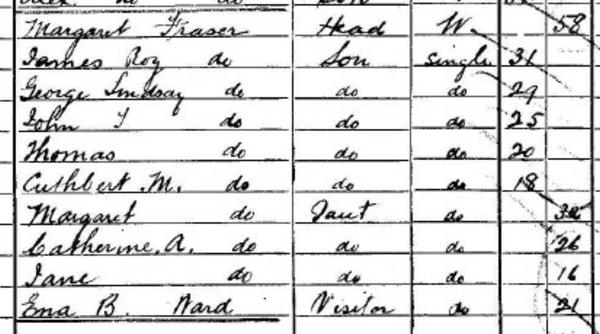 do do
Margaret Fraser Head W. 58
James Roy do Son single 31
George Lindsay do do do 29
John T do do do 25
Thomas do do do 20
Cuthbert M. do do do 18
Margaret do Daut do
Catherine. A. do do do 26
Jane do do do 16
Ena B. Ward Visitor do 21